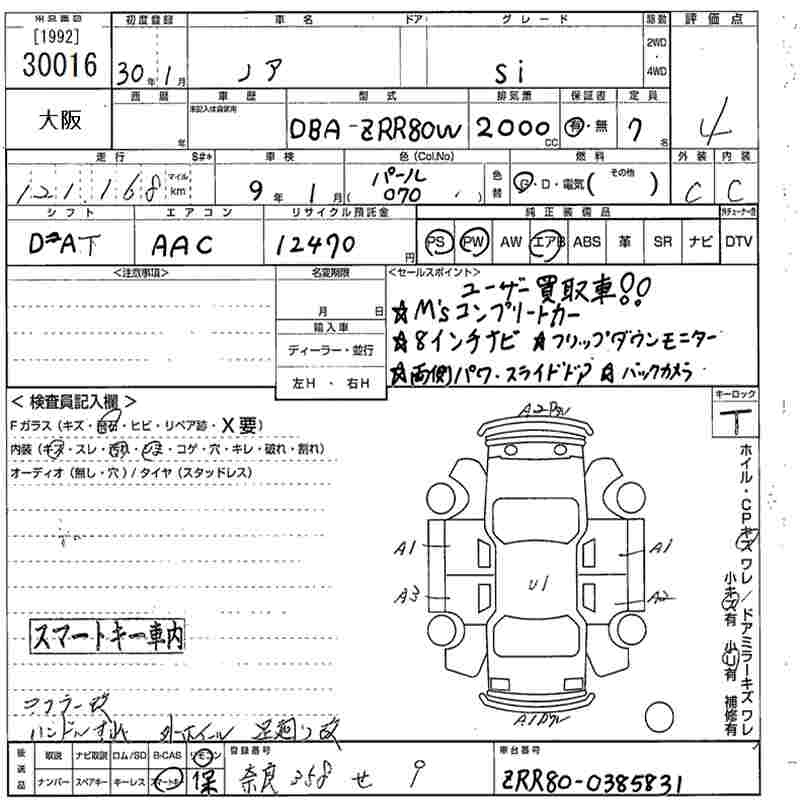 [1992]
30016
大阪
初度登録
30年1月
車名
ノア
ドア
グレード
si
駆動
2WD
4WD
評価点
4
年
車歴
型式
DBA-ZRR80W
排気量
2000cc
保証書
有・無
定員
7名
走行
121,168
マイル
km
S#*
車検
9年1月
色(Col.No)
パール
(070)
色替
燃料
G・D・電気(その他)
外装
C
内装
C
シフト
エアコン
AAC
リサイクル預託金
12470円
純正装備品
PS PW AW エアB ABS 革 SR ナビ DTV
<注意事項>
名変期限
月 日
輸入車
ディーラー・並行
左H・右H
<セールスポイント>
ユーザー買取車!!
☆M'sコンプリートカー
☆8インチナビ ☆フリップダウンモニター
☆両側パワースライドドア ☆バックカメラ
<検査員記入欄>
Fガラス(キズ・飛石・ヒビ・リペア跡・X要)
内装(キズ・スレ・切れ・シミ・コゲ・穴・キレ・破れ・割れ)
オーディオ(無し・穴)/タイヤ(スタッドレス)
キーロック
T
A1
A3
U1
A1
A2
ホイル・CPキズワレ/ドアミラーキズワレ
小キズ有 小U有 補修有
スマートキー車内
マフラー改
ハンドルすれ 社外ホイール 足廻り改
後送品
取説 ナビ取説 ロム/SD B-CAS リモコン
ナンバー スペアキー キーレス スマートキー 保
登録番号
奈良 358 せ 9
車台番号
ZRR80-0385831